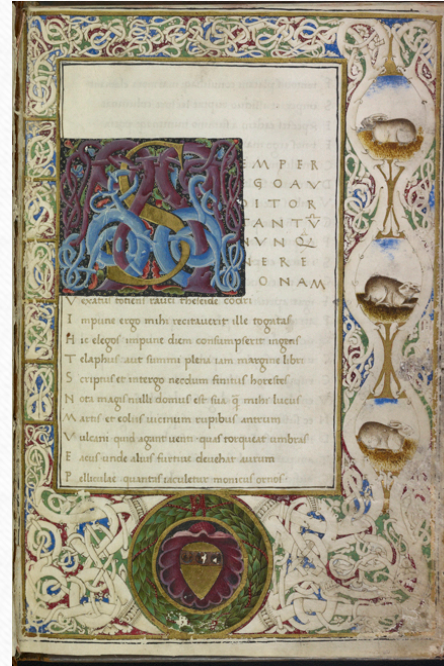 SEMPER
EGO AV
DITOR
TANTV̄
NVNQ̃
NERE
PONAM
V exatus totiens rauci theseide codri
I mpune ergo mihi recitauerit ille togatas
H ic elegos impune diem consumpserit ingens
T elaphus aut summi plena iam margine libri
S criptus et intergo necdum finitus horestes
N ota magis nulli domus est sua q̃ mihi lucus
M artis et eoliis uicinum rupibus antrum
V ulcani quid agant uenti quas torqueat umbras
E acus unde alius furtiue deuehat aurum
P elliculae quantas iaculetur monicus ornos